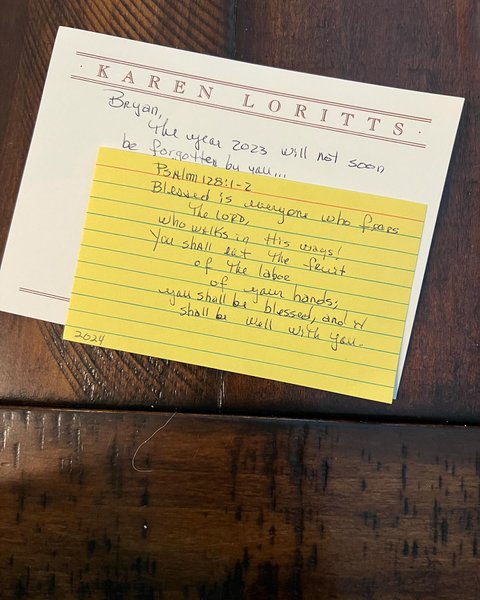 · KAREN LORITTS ·
Bryan,
The year 2023 will not soon
be forgotten by you...
Psalm 128:1-2
Blessed is everyone who fears
The LORD,
who walks in His ways!
You shall eat the fruit
of the labor
of your hands;
you shall be blessed, and it
shall be well with you.
2024